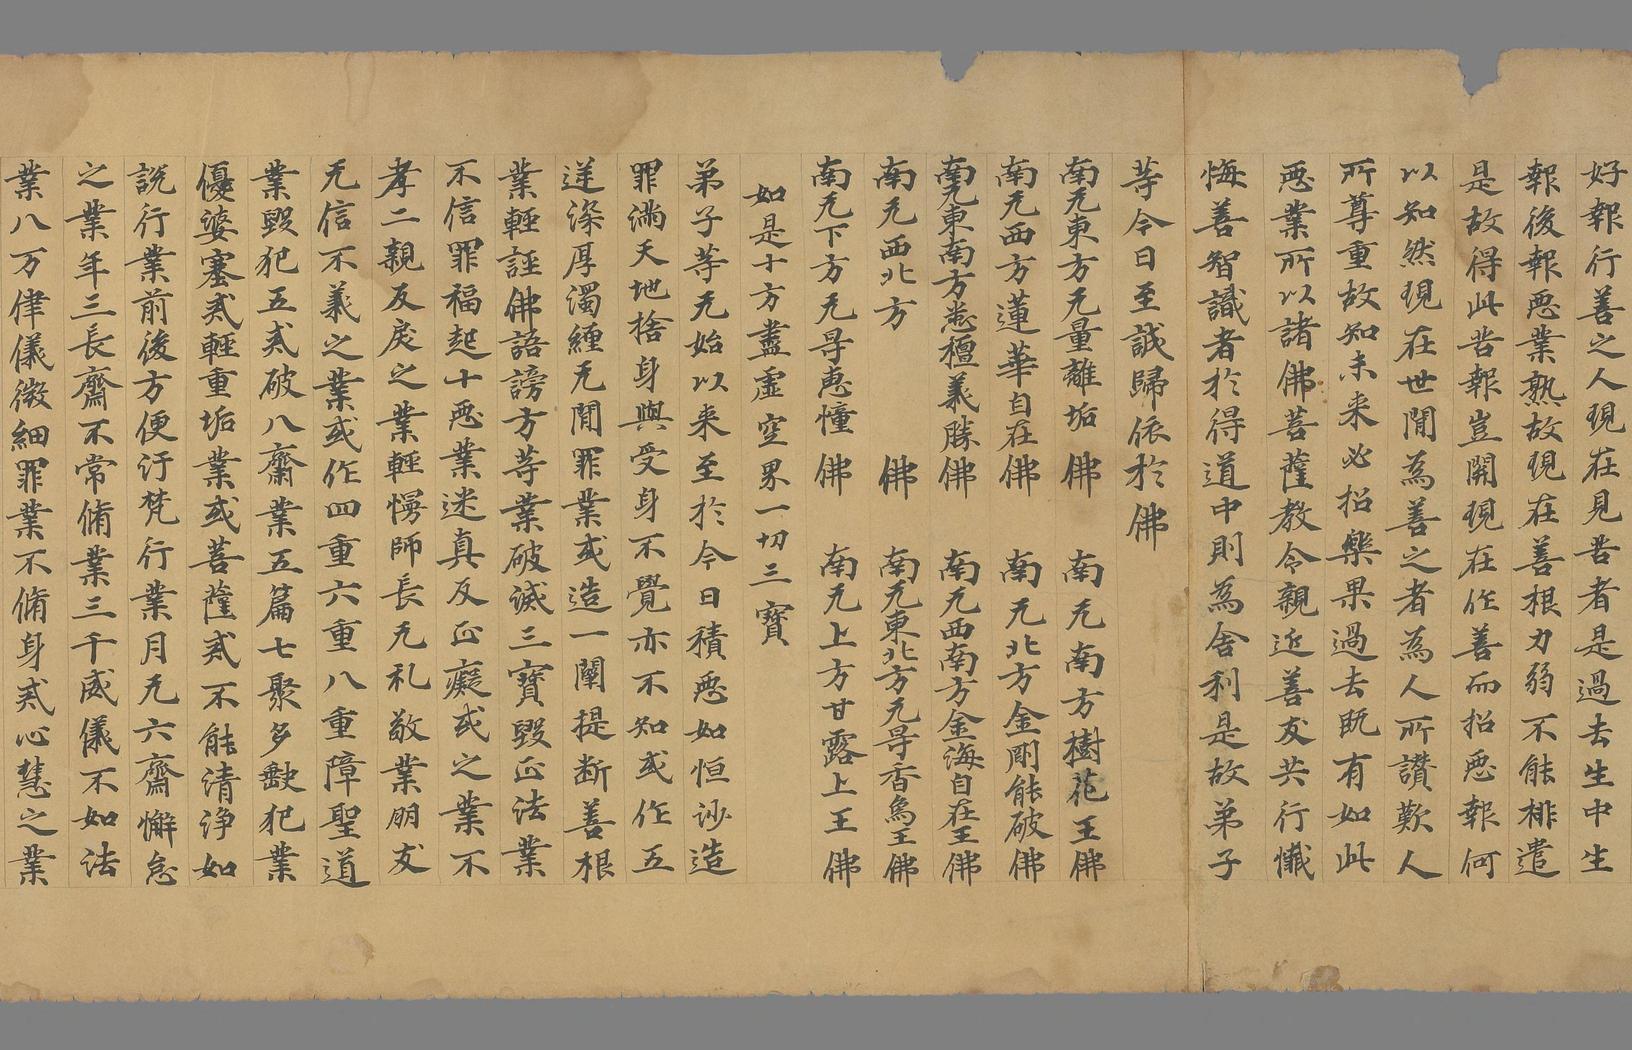 好報行善之人現在見苦者是過去生中生
報後報惡業熟故現在善根力弱不能排遣
是故得此苦報豈關現在作善而招惡報何
以知然現在世間為善之者為人所讚歎人
所尊重故知未来必招樂果過去既有如此
惡業所以諸佛菩薩教令親近善友共行懺
悔善智識者於得道中則為舍利是故弟子
等今日至誠歸依於佛
南无東方无量離垢佛 南无南方樹花王佛
南无西方蓮華自在佛 南无北方金剛能破佛
南无東南方㦲檀義勝佛 南无西南方金海自在王佛
南无西北方 佛 南无東北方无㝵香烏王佛
南无下方无㝵惠幢佛 南无上方甘露上王佛
如是十方盡虛空界一切三寶
弟子等无始以来至於今日積惡如恒沙造
罪滿天地捨身與受身不覺亦不知或作五
逆深厚濁纏无間罪業或造一闡提断善根
業輕誣佛語謗方等業破滅三寶毀正法業
不信罪福起十惡業迷真反正癡或之業不
孝二親反戾之業輕慢師長无礼敬業朋友
无信不義之業或作四重六重八重障聖道
業毀犯五戒破八齋業五篇七聚多𡙇犯業
優婆塞戒輕重垢業或菩薩戒不能清淨如
說行業前後方便汙梵行業月无六齋懈怠
之業年三長齋不常脩業三千威儀不如法
業八万律儀微細罪業不脩身戒心慧之業